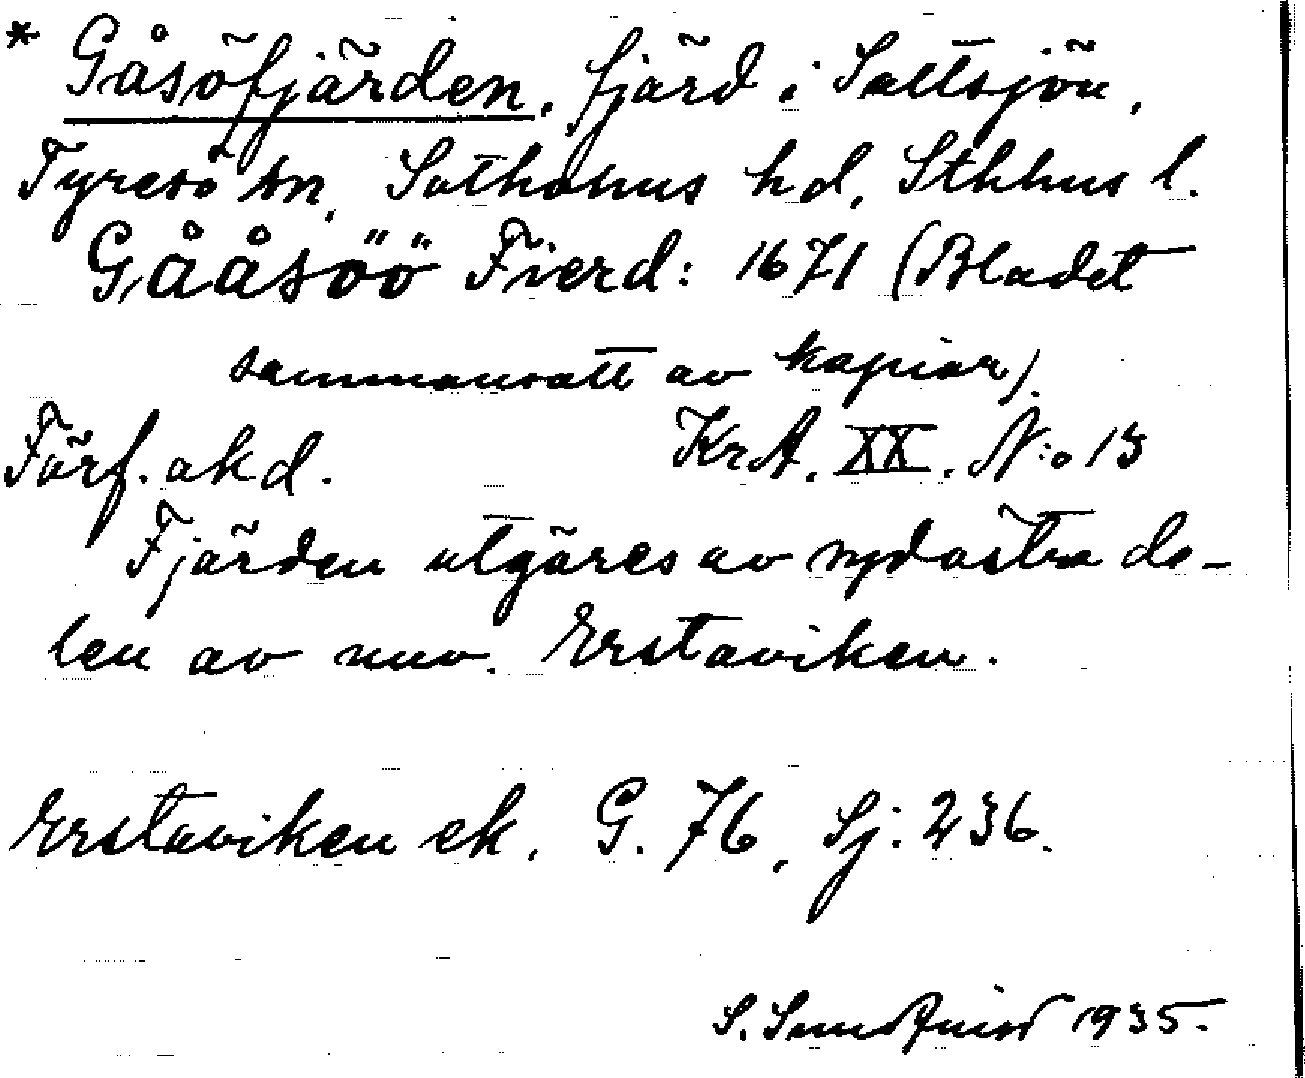 * Gåsöfjärden, fjärd i Saltsjön,
Tyresö sn, Sotholms hd, Sthlms l.
Gååsöö Fierd: 1671 (Bladet
sammansatt av kopior).
Förf. okd. KrA. XX. N:o 13
Fjärden utgöres av sydöstra de-
len av nuv. Erstaviken.
Erstaviken ek. G. 76, Sj. 236.
S. Sundquist 1935.